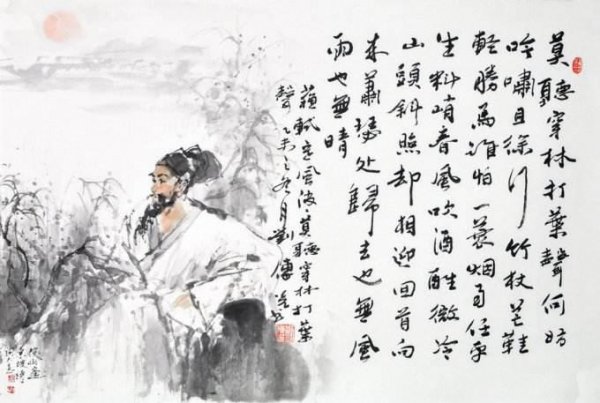 莫聽穿林打葉聲何妨
吟嘯且徐行竹杖芒鞋
輕勝馬誰怕一蓑烟雨任平
生料峭春風吹酒醒微冷
山頭斜照却相迎回首向
来蕭瑟处歸去也無風
雨也無晴
蘇軾定風波·莫聽穿林打葉
聲乙未之九月劉傅